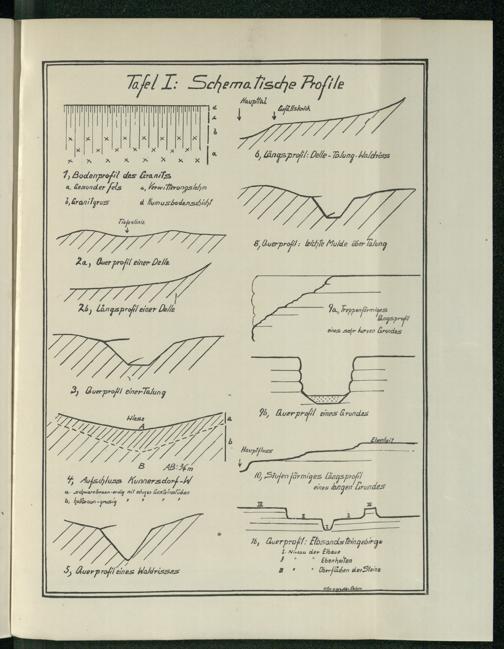 Tafel I: Schematische Profile
d
c
b
a
1, Bodenprofil des Granits
a, Gesunder Fels c, Verwitterungslehm
b, Granitgruss d Humusbodenschicht
Tiefenlinie
2a, Querprofil einer Delle
2b, Längsprofil einer Delle
3, Querprofil einer Talung
Wiese
A
a
b
B AB: ¾ m
4, Aufschluss Kunnersdorf-W
5, Querprofil eines Waldrisses
Haupttal
Gefällsknick
6, Längsprofil: Delle-Talung-Waldriss
8, Querprofil: leichte Mulde über Talung
9a, Treppenförmiges
Längsprofil
eines sehr kurzen Grundes
9b, Querprofil eines Grundes
Hauptfluss
Ebenheit
10, Stufenförmiges Längsprofil
eines langen Grundes
III
II
I
II
III
11, Querprofil: Elbsandsteingebirge
I Niveau der Elbaue
II " " Ebenheiten
III " " Oberflächen der Steine